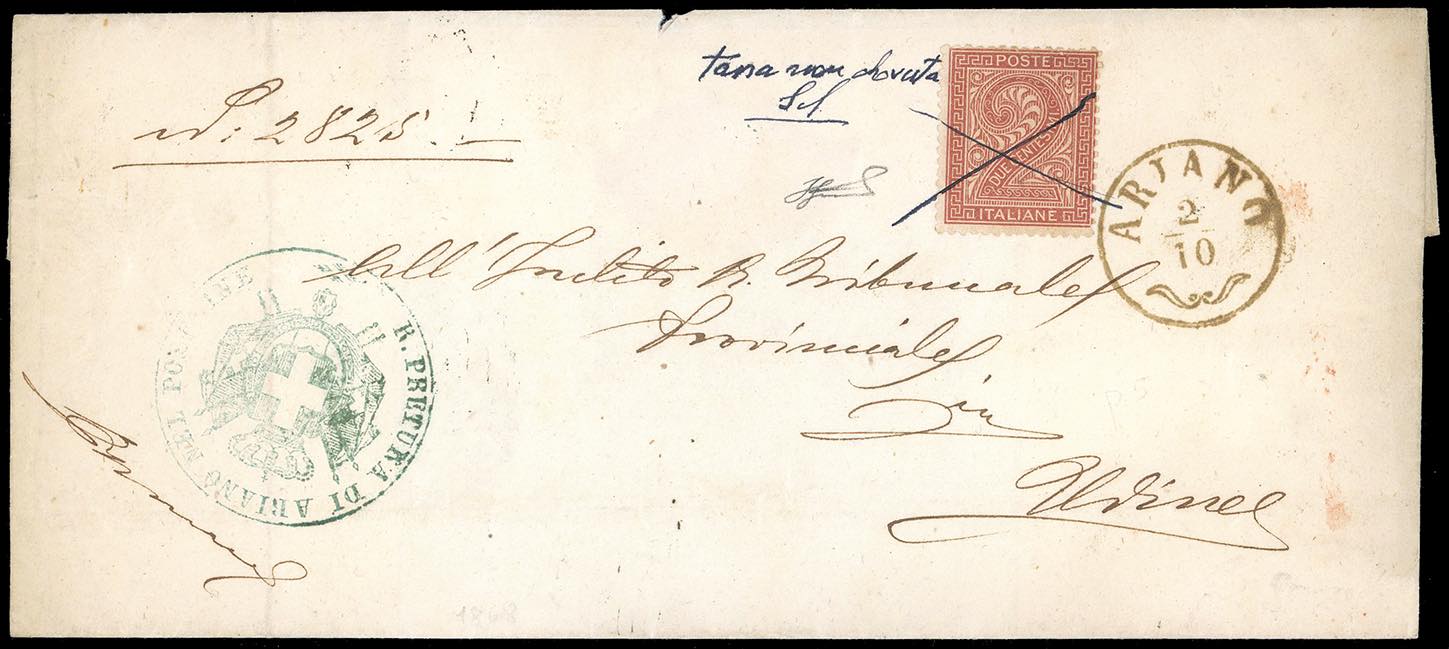 tassa non dovuta
N: 2825.
POSTE
DUE CENTESIMI
2
ITALIANE
ARIANO
2
10
All' Inclito R. Tribunale
Provinciale
in
Udine
R. PRETURA DI ARIANO NEL POLESINE
p.5
1868